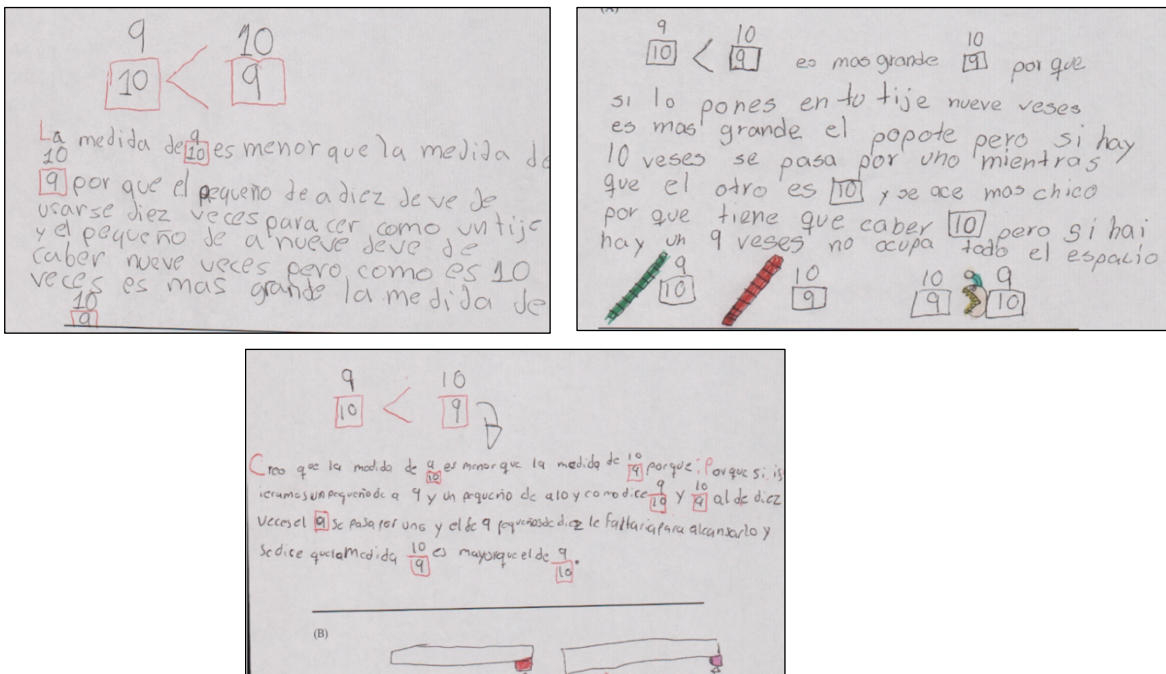 9 < 10
10 9
La medida de 9/10 es menor que la medida de
10/9 por que el pequeño de a diez de ve de
usarse diez veces para cer como un tije
y el pequeño de a nueve deve de
caber nueve veces pero como es 10
veces es mas grande la medida de
10/9
(A)
9/10 < 10/9 es mas grande 10/9 por que
si lo pones en tu tije nueve veses
es mas grande el popote pero si hay
10 veses se pasa por uno mientras
que el otro es 10 y se ace mas chico
por que tiene que caber 10 pero si hai
hay un 9 veses no ocupa todo el espacio
9/10 10/9 10/9 9/10
9 < 10
10 9
Creo que la medida de 9/10 es menor que la medida de 10/9 porque: Porque si is
ieramos un pequeño de a 9 y un pequeño de a 10 y como dice 9/10 y 10/9 al de diez
veces el 9 se pasa por uno y el de 9 pequeños de diez le faltaria para alcansarlo y
se dice que la medida 10/9 es mayor que el de 9/10.
(B)